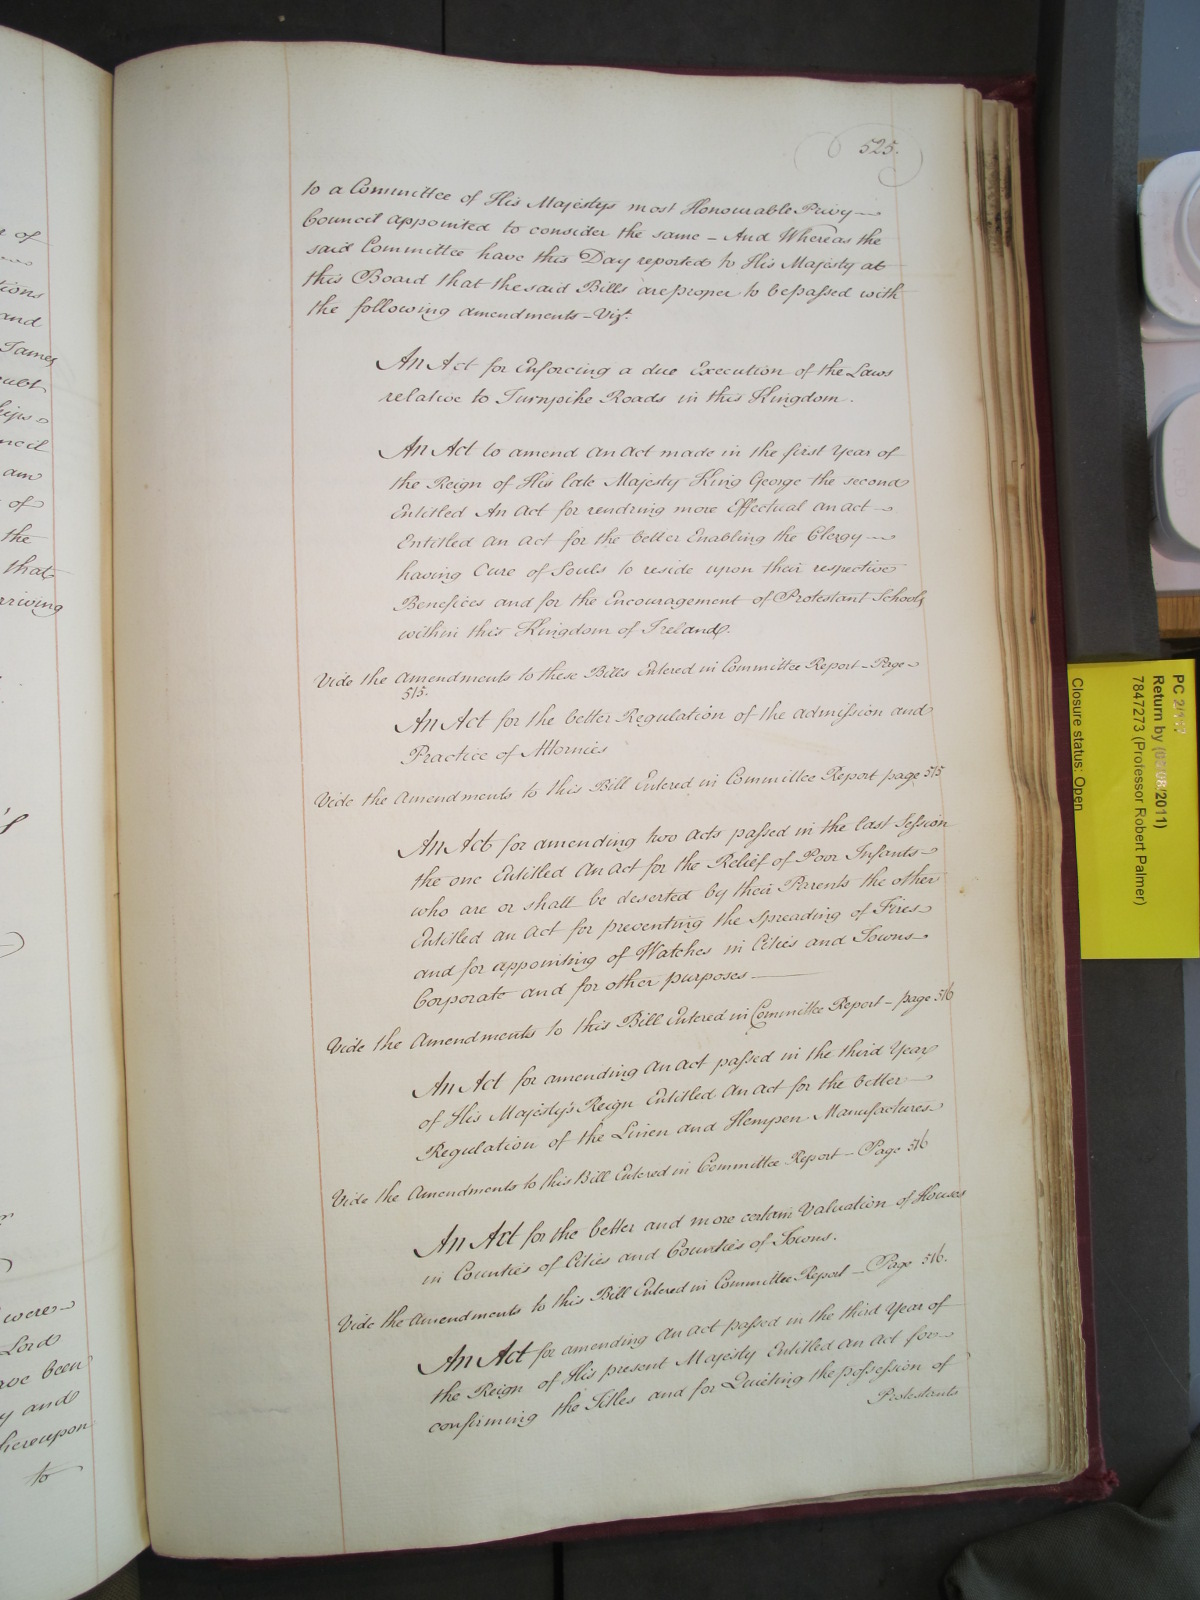 525.
to a Committee of His Majestys most Honourable Privy
Council appointed to consider the same – And Whereas the
said Committee have this Day reported to His Majesty at
this Board that the said Bills are proper to be passed with
the following amendments – Vizt.
An Act for Enforcing a due Execution of the Laws
relative to Turnpike Roads in this Kingdom.
An Act to amend an act made in the first Year of
the Reign of His late Majesty King George the second
Entitled An Act for rendring more Effectual an act
Entitled an act for the better Enabling the Clergy
having Cure of Souls to reside upon their respective
Benefices and for the Encouragement of Protestant Schools
within this Kingdom of Ireland.
Vide the Amendments to these Bills Entered in Committee Report – Page
515.
An Act for the better Regulation of the admission and
Practice of Attornies
Vide the Amendments to this Bill Entered in Committee Report page 515
An Act for amending two acts passed in the last Session
the one Entitled An act for the Relief of Poor Infants
who are or shall be deserted by their Parents the other
Entitled an Act for preventing the Spreading of Fires
and for appointing of Watches in Cities and Towns
Corporate and for other purposes
Vide the Amendments to this Bill Entered in Committee Report – page 516
An Act for amending an act passed in the third Year
of His Majesty's Reign Entitled an act for the better
Regulation of the Linen and Hempen Manufactures
Vide the Amendments to this Bill Entered in Committee Report – Page 516
An Act for the better and more certain Valuation of Houses
in Counties of Cities and Counties of Towns.
Vide the Amendments to this Bill Entered in Committee Report – Page 516.
An Act for amending an act passed in the third Year of
the Reign of His present Majesty Entitled an act for
confirming the Titles and for Quieting the possession of
Protestants
of
tions
and
James
oubt
ncil
am
of
the
that
arriving
were
Lord
have been
y and
hereupon
to
PC 2/1
Return by (0 /08/2011)
7847273 (Professor Robert Palmer)
Closure status: Open